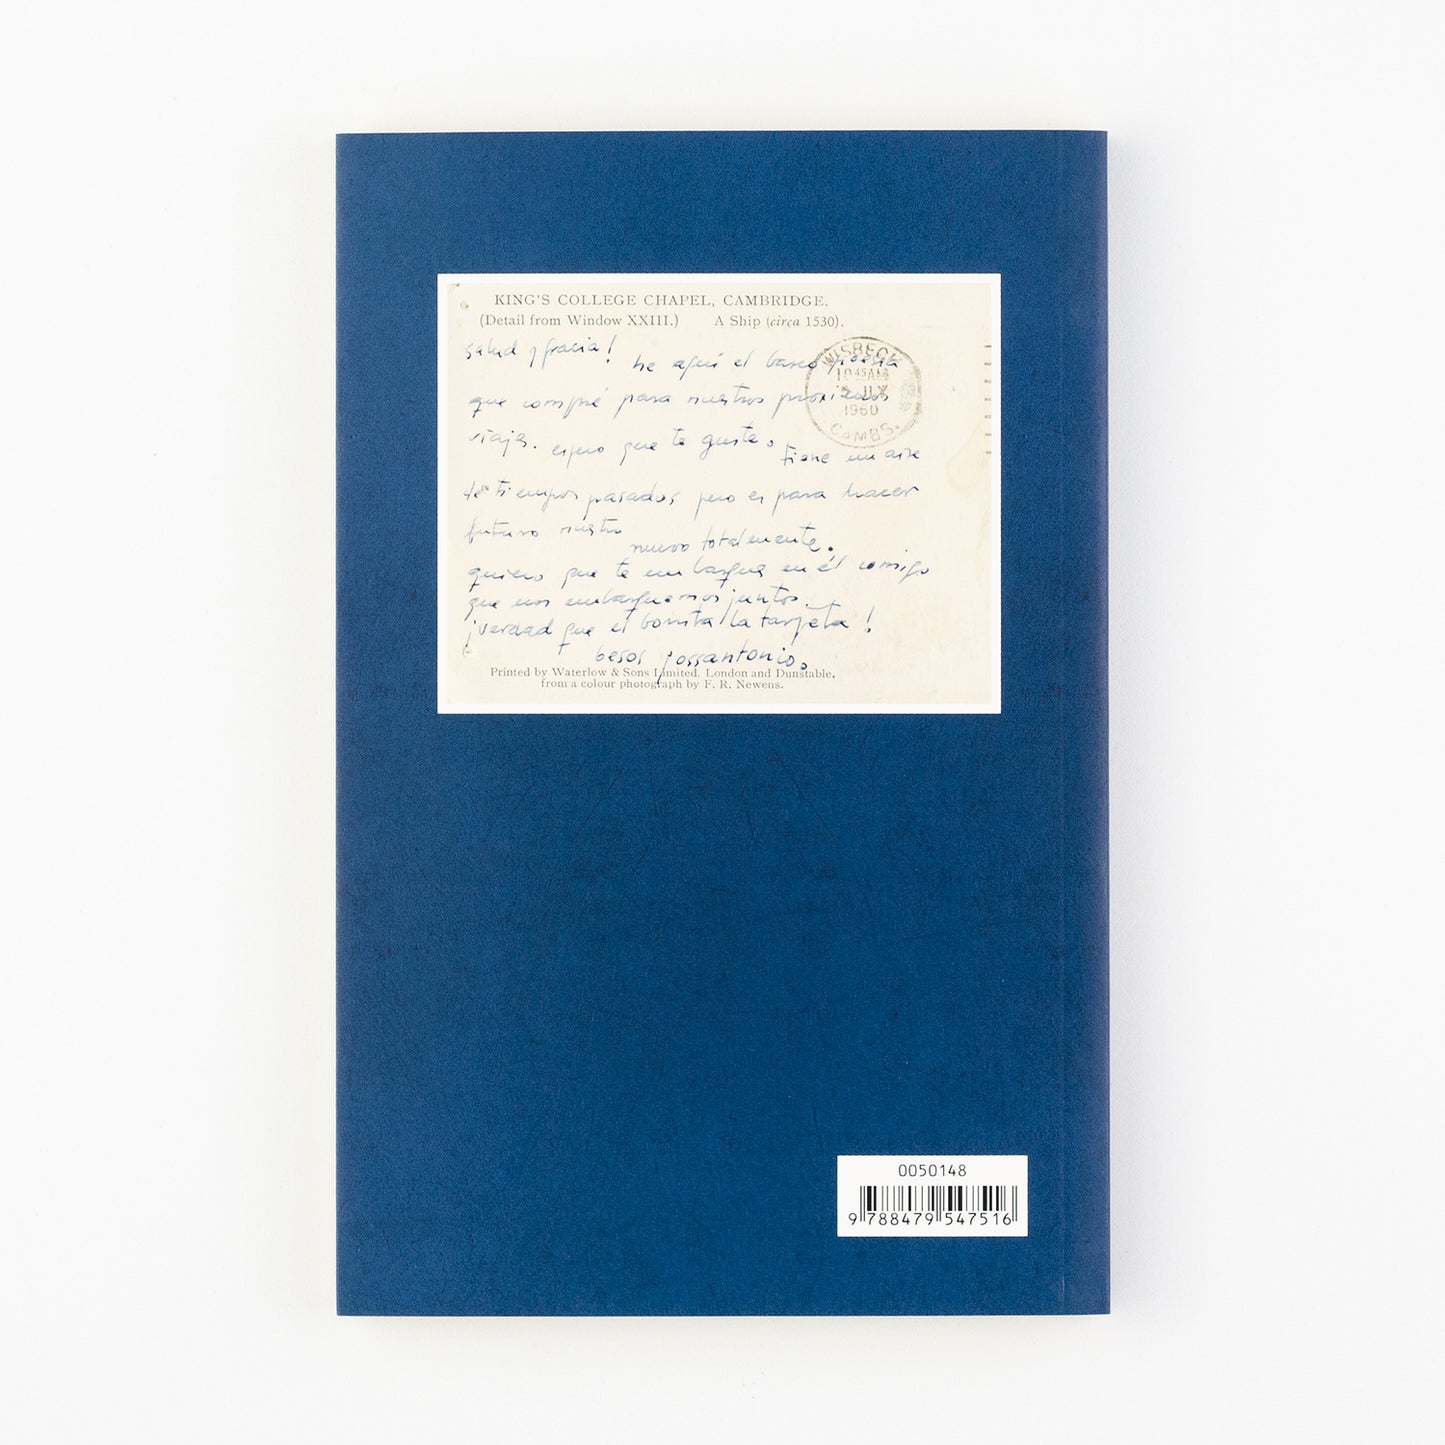 KING'S COLLEGE CHAPEL, CAMBRIDGE.
(Detail from Window XXIII.) A Ship (circa 1530).
salud y gracia! he aquí el barco poesía
que compré para nuestros proximos
viajes. espero que te guste. tiene un aire
de tiempos pasados pero es para hacer
futuro nuestro
nuevo totalmente.
quiero que te embarques en él comigo
que nos embarquemos juntos.
¡verdad que es bonita la tarjeta!
besos yossantonio.
Printed by Waterlow & Sons Limited. London and Dunstable,
from a colour photograph by F. R. Newens.
WISBECH
10 45 AM
5 JLY
1960
CAMBS.
0050148
9 788479 547516